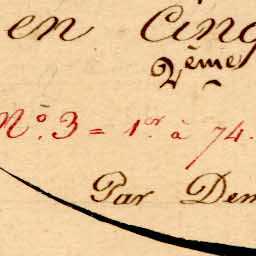 en Cinq
2ème
Nº. 3 = 1er. à 74.
Par Dem